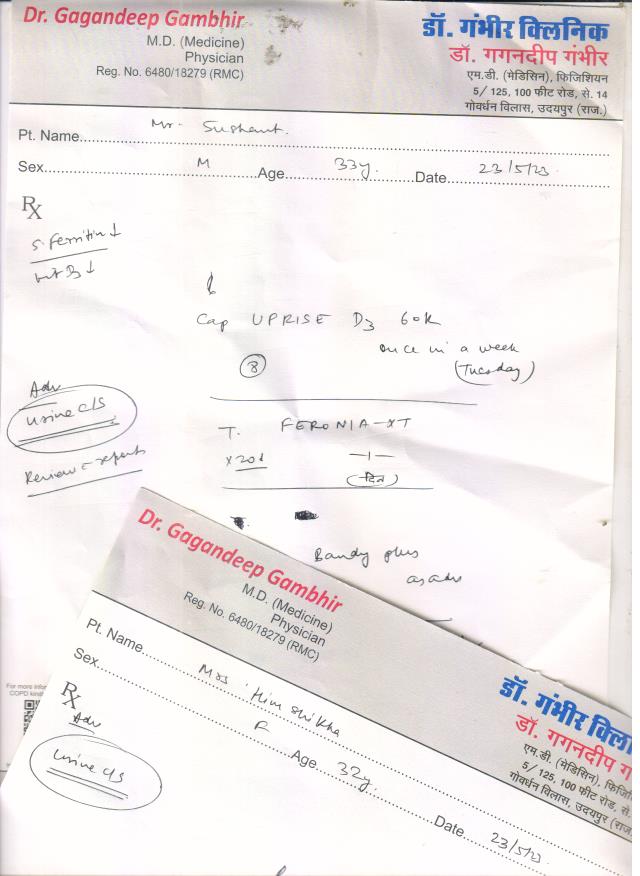 Dr. Gagandeep Gambhir
M.D. (Medicine)
Physician
Reg. No. 6480/18279 (RMC)
डॉ. गंभीर क्लिनिक
डॉ. गगनदीप गंभीर
एम.डी. (मेडिसिन), फिजिशियन
5/ 125, 100 फीट रोड, से. 14
गोवर्धन विलास, उदयपुर (राज.)
Pt. Name Mr. Sushant.
Sex M Age 33y. Date 23/5/23
Rx
S. Ferritin ↓
Vit D3 ↓
Cap UPRISE D3 60K
once in a week
(Tuesday)
8
Adv
Urine c/s
Review c reports
T. FERONIA-XT
x 20d -1-
(दिन)
T.
Bandy plus
as adv
Dr. Gagandeep Gambhir
M.D. (Medicine)
Physician
Reg. No. 6480/18279 (RMC)
डॉ. गंभीर क्लि
डॉ. गगनदीप ग
एम.डी. (मेडिसिन), फिजि
5/ 125, 100 फीट रोड, से.
गोवर्धन विलास, उदयपुर (राज.
Pt. Name Mrs. Himshikha
Sex F Age 32y. Date 23/5/23
Rx
Adv
Urine c/s
For more infor
COPD kindl